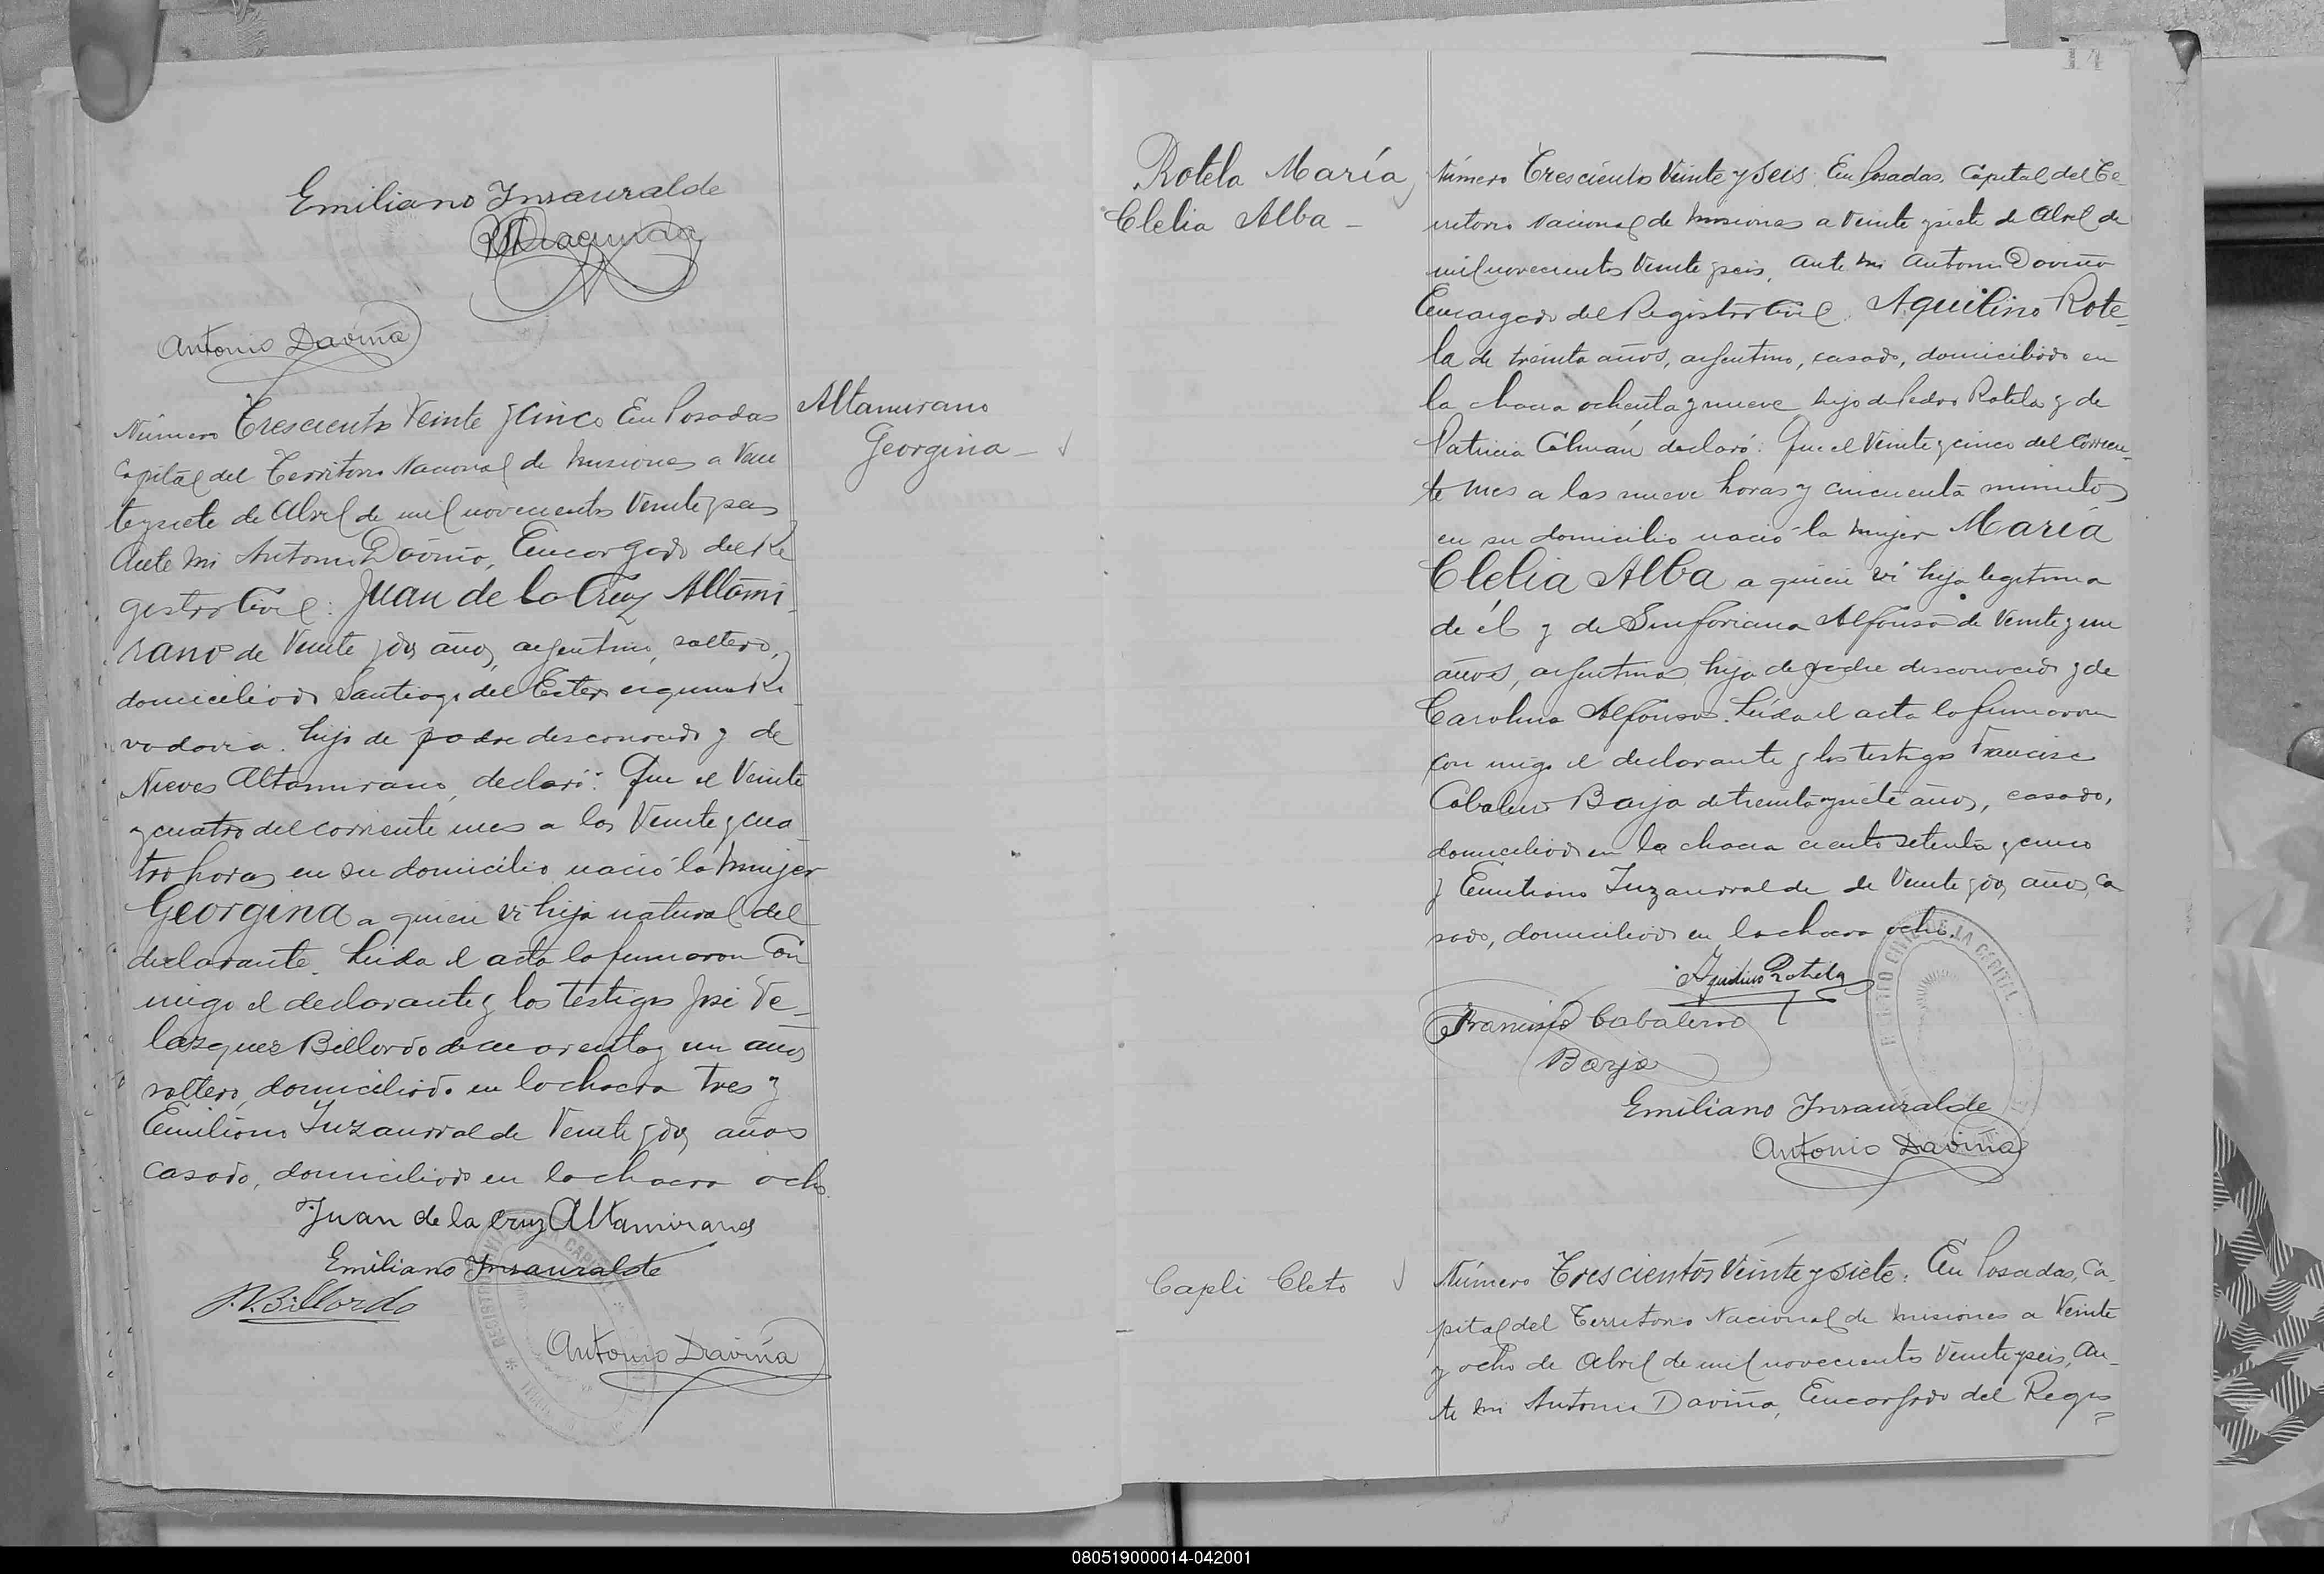 Emiliano Insauralde
Antonio Daviña
Altamirano
Georgina
Número Trescientos Veinte y cinco En Posadas
Capital del Territorio Nacional de Misiones a Vein
teysiete de Abril de mil novecientos Veinte y seis
Ante mi Antonio Daviña, Encargado del Re
gistro Civil: Juan de la Cruz Altami
rano de Veinte y dos años, argentino, soltero,
domiciliado Santiago del Estero esquina Ri
vadavia. hijo de padre desconocido y de
Nieves Altamirano, declaró: Que el Veinte
y cuatro del corriente mes a las Veinte y cua
tro horas en su domicilio nació la mujer
Georgina a quien vi hija natural del
declarante. Leida el acta la firmaron con
migo el declarante y los testigos José Ve-
lazquez Billordo de cuarenta y un años
soltero, domiciliado en la chacra tres y
Emiliano Inzaurralde Veinte y dos años
casado, domiciliado en la chacra ocho.
Juan de la Cruz Altamirano
Emiliano Insauralde
J.V. Billordo
Antonio Daviña
14
Rotela María
Clelia Alba -
Número Trescientos Veinte y seis. En Posadas, Capital del Te-
rritorio Nacional de Misiones a Veinte y siete de Abril de
mil novecientos Veinte y seis, Ante mi Antonio Daviña
Encargado del Registro Civil. Aquilino Rote-
la de treinta años, argentino, casado, domiciliado en
la chacra ochenta y nueve hijo de Pedro Rotela y de
Patricia Colmán declaró: Que el Veinte y cinco del Corrien-
te mes a las nueve horas y cincuenta minutos
en su domicilio nació la mujer María
Clelia Alba a quien vi hija legitima
de él y de Sinforiana Alfonso de Veinte y un
años, argentina, hija de padre desconocido y de
Carolina Alfonso. Leida el acta la firmaron
con migo el declarante y los testigos Francisco
Cabalero Barja de treinta y siete años, casado,
domiciliado en la chacra ciento setenta y cinco
y Emiliano Inzaurralde de Veinte y dos años, ca
sado, domiciliado en la chacra ocho.
Aquilino Rotela
Francisco Cabalerro
Barja
Emiliano Insauralde
Antonio Daviña
Capli Cleto
Número Trescientos Veinte y siete: En Posadas, Ca-
pital del Territorio Nacional de Misiones a Veinte
y ocho de Abril de mil novecientos Veinte y seis, An-
te mi Antonio Daviña, Encargado del Regis
080519000014-042001